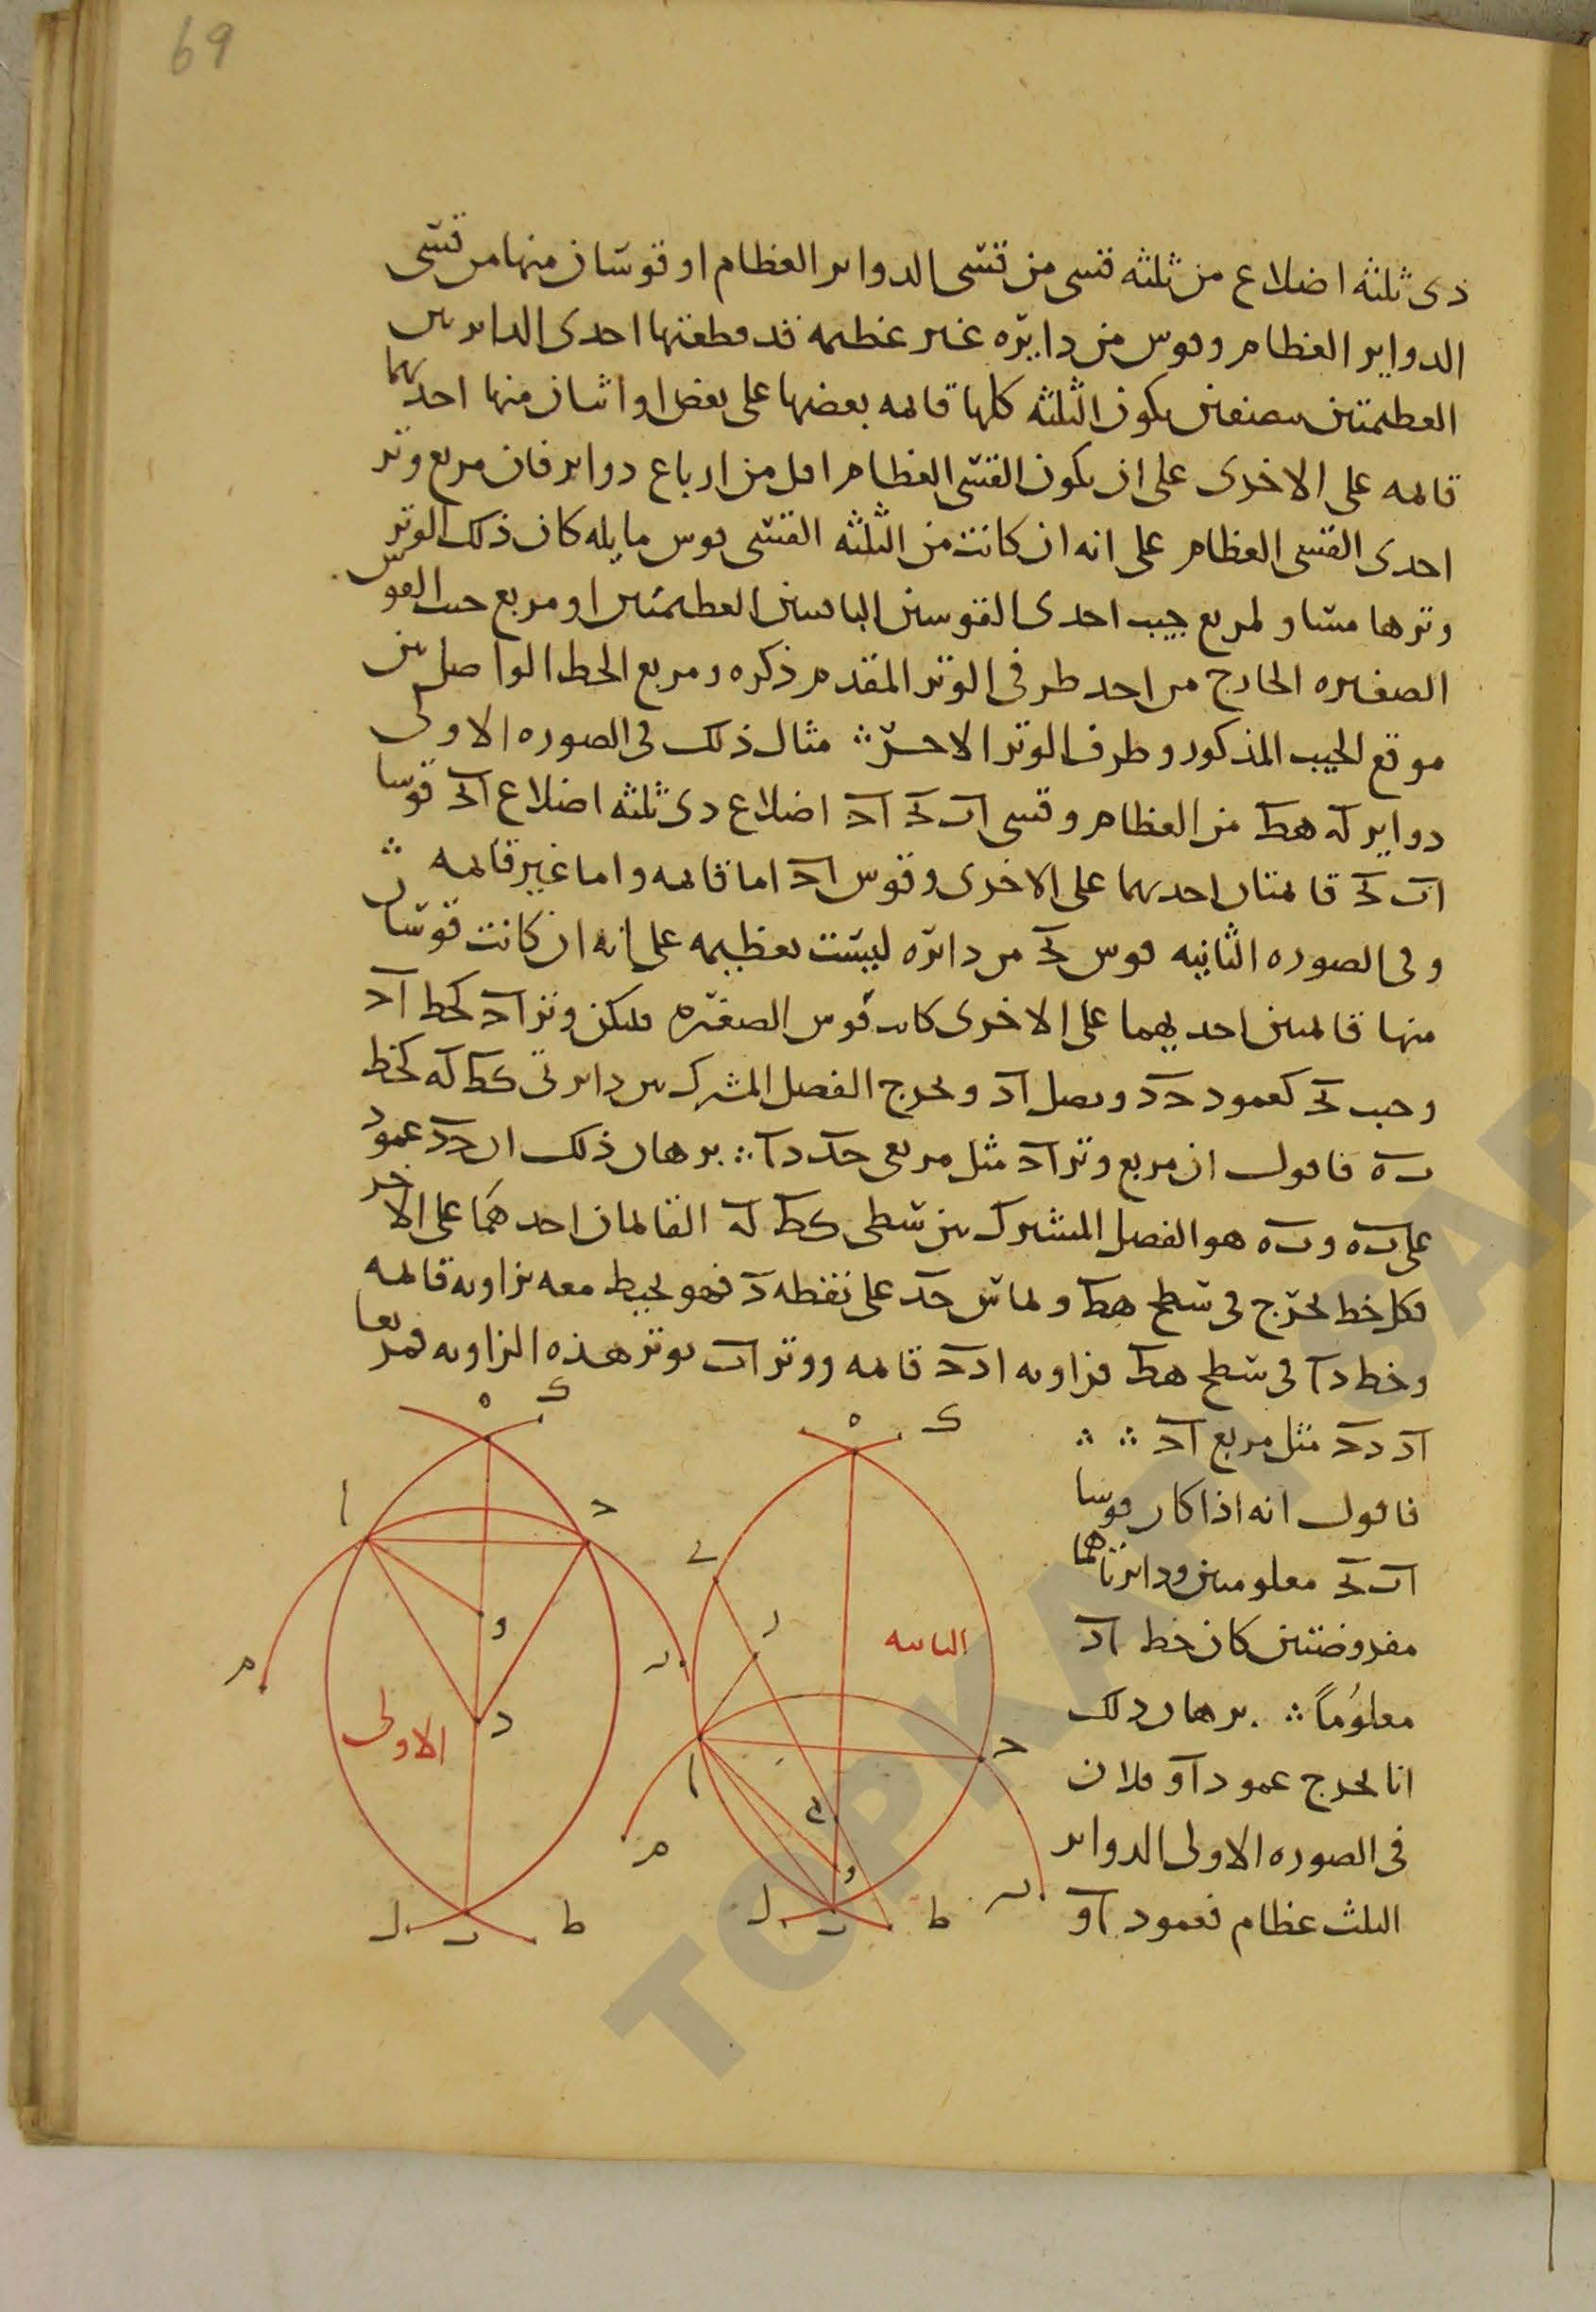 69
ذى ثلثه اضلاع من ثلثه قسى من قسى الدواير العظام او قوسان منها من قسى
الدواير العظام وقوس من دايره غير عظيمه قد قطعتها احدى الدايرتين
العظيمتين بنصفين يكون الثلثه كلها قايمه بعضها على بعض او اثنان منها احديهما
قايمه على الاخرى على ان يكون القسى العظام اقل من ارباع دواير فان مربع وتر
احدى القسى العظام على انه ان كانت من الثلثه القسى قوس مايله كان ذلك الوتر
وترها مساو لمربع جيب احدى القوسين الباقيتين العظيمتين او مربع جيب القوس
الصغيره الخارج من احد طرفى الوتر المقدم ذكره ومربع الخط الواصل بين
موقع الجيب المذكور وطرف الوتر الاخر ∴ مثال ذلك فى الصوره الاولى
دواير كه هط من العظام وقسى اب بح اح اضلاع ذى ثلثه اضلاع ابح قوسا
اب بح قايمتان احديهما على الاخرى وقوس اح اما قايمه واما غير قايمه ∴
وفى الصوره الثانيه قوس بح من دايره ليست بعظيمه على انه ان كانت قوسان
منها قايمتين احديهما على الاخرى كانت قوس الصغيره فليكن وتر اح كخط اح
وجيب بح كعمود حد ونصل اد ونخرج الفصل المشترك بين دايرتى كط له كخط
به فاقول ان مربع وتر اح مثل مربعى حد دا ∴ برهان ذلك ان حد عمود
على به وبه هو الفصل المشترك بين سطحى كط له القايمان احدهما على الاخر
فكل خط يخرج فى سطح هط ويماس حد على نقطه د فهو يحيط معه بزاويه قايمه
وخط دا فى سطح هط فزاويه ادح قايمه ووتر اب يوتر هذه الزاويه فمربعا
اد دح مثل مربع اح ∴ ∴
فاقول انه اذا كان قوسا
اب بح معلومتين ودايرتاهما
مفروضتين كان خط اد
معلوُماً ∴ برهان ذلك
انا نخرج عمود او فلان
فى الصوره الاولى الدواير
الثلث عظام فعمود او
ه ك
ا ح
و
م د ن
الاولى
ل ب ط
ه ك
ح
ز
الثانيه
ا ح
م و
ل ب ط ن
TOPKAPI SAR